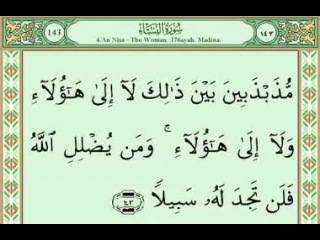 143 سُورَةُ النِّسَاءِ ١٤٣
4.An Nisa - The Woman, 176ayah, Madina.
مُّذَبْذَبِينَ بَيْنَ ذَٰلِكَ لَآ إِلَىٰ هَـٰٓؤُلَآءِ
وَلَآ إِلَىٰ هَـٰٓؤُلَآءِ ۚ وَمَن يُضْلِلِ ٱللَّهُ
فَلَن تَجِدَ لَهُۥ سَبِيلًا ١٤٣